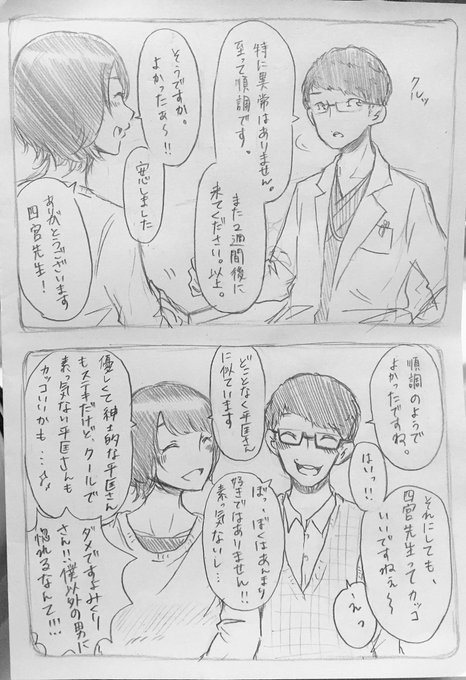 クルッ
特に異常はありません。
至って順調です。
また2週間後に
来てください。以上。
そうですか。
よかったぁ〜!!
安心しました
ありがとうございます
四宮先生!
順調のようで
よかったですね。
はいっ!!
それにしても、
四宮先生ってカッコ
いいですねぇ〜
えっ
どことなく平匡さん
に似ています
ぼっ、ぼくはあんまり
好きではありません!!
素っ気ないし…
優しくて紳士的な平匡さん
もステキだけど、クールで
素っ気ない平匡さんも
カッコいいかも…♪
ダメですよみくり
さん!!僕以外の男に
惚れるなんて!!!